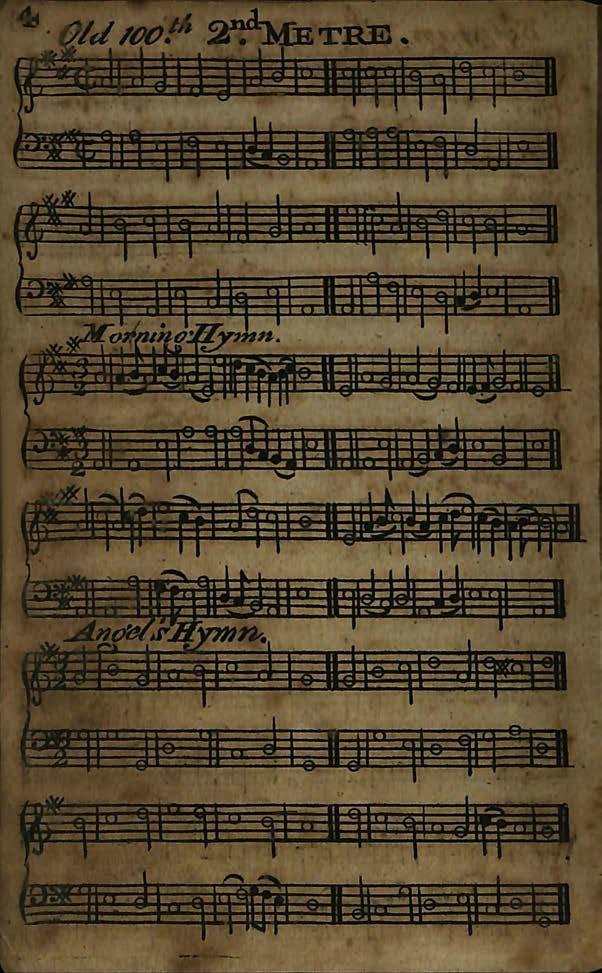 4
Old 100.th 2.nd METRE.
Morning Hymn.
3
2
3
2
Angel's Hymn.
3
2
3
2